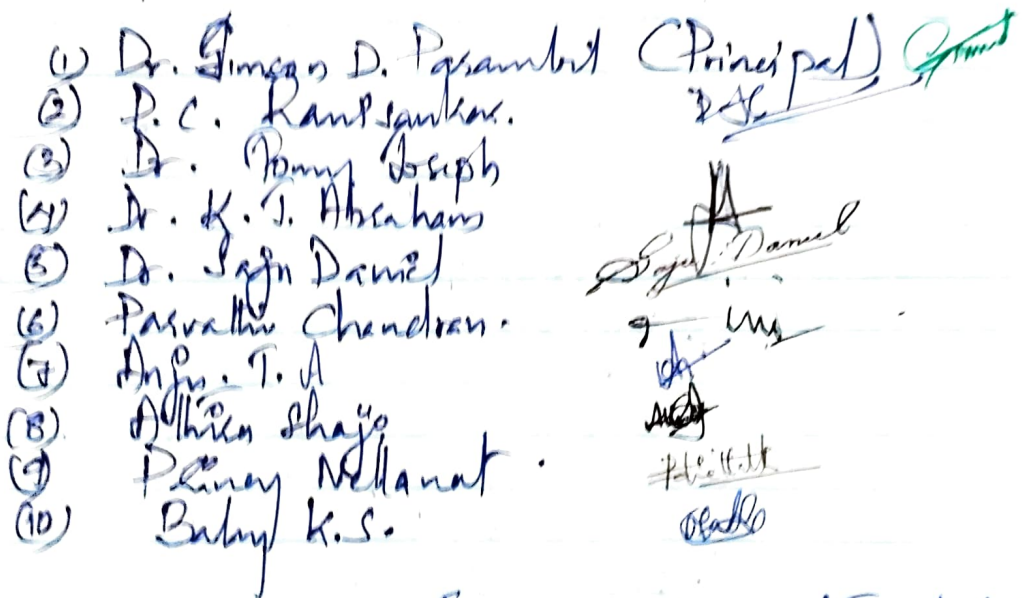 (1) Dr. Simson D. Parambil (Principal)
(2) P. C. Ravisankar.
(3) Dr. Tomy Joseph
(4) Dr. K. J. Abraham
(5) Dr. Saju Daniel Saju Daniel
(6) Parvathy Chandran.
(7) Anju. T. A
(8) Shaju
(9) Nellanat.
(10) Baby K.S.